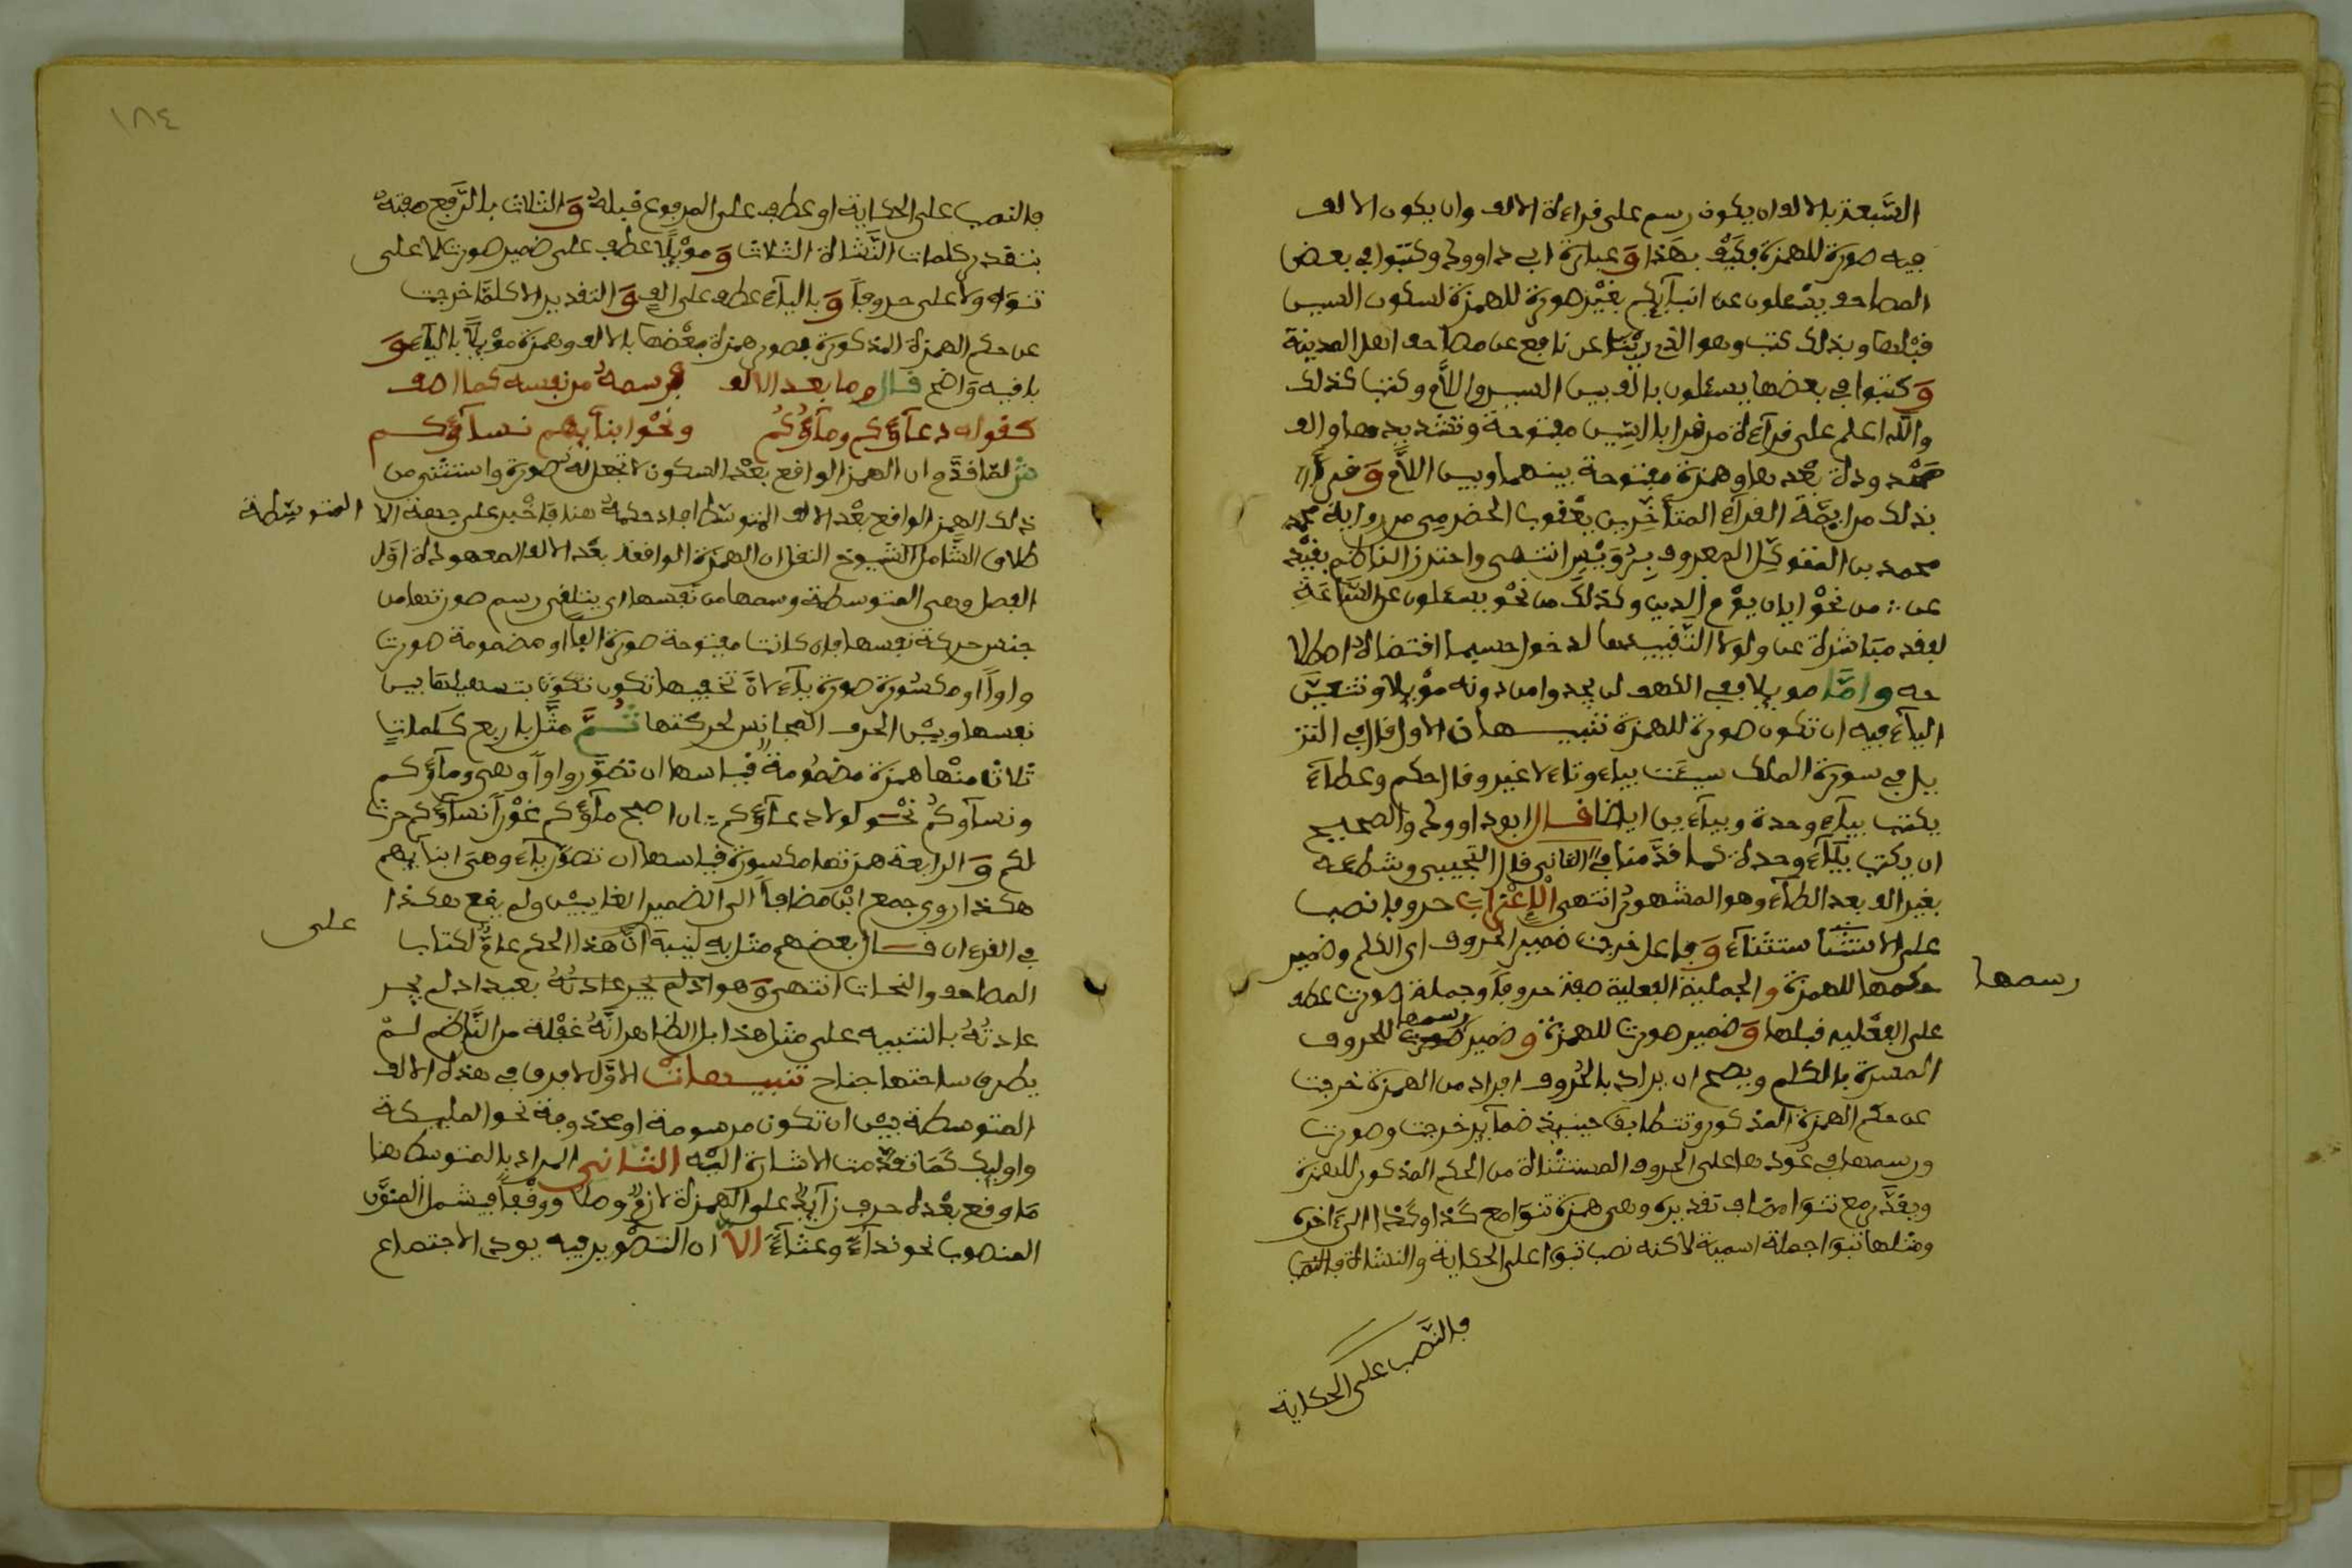 السبعة بالالف ان يكون رسم على قراءة الالف وان يكون الالف
فيه صورة للهمزة فكيف بهذا وعبارة ابي داوود وكتبوا في بعض
المصاحف يسئلون عن انبآئكم بغير صورة للهمزة لسكون السين
قبلها وبذلك كتب وهو الذي روينا عن نافع عن مصاحف اهل المدينة
وكتبوا في بعضها يسءلون بالف بين السين واللام وكتب كذلك
والله اعلم على قرآءة من قرا بالسين مفتوحة وتشديدها والف
ممدودة بعدها وهمزة مفتوحة بينهما وبين اللام وقرا
بذلك من ايمة القرآء المتأخرين يعقوب الحضرمي من رواية
محمد بن المتوكل المعروف برويس انتهى واحترز الناظم بقيد
عن من نحو ايان يوم الدين وكذلك من نحو يسءلون عن الساعة
لفقد مباشرة عن ولولا التقييد بها لدخول حسبما اقتضاه اصطلا
حه واما موئلا ففي الكهف لن يجدوا من دونه موئلا وتتعين
اليآء فيه ان تكون صورة للهمزة تنبيهان الاول قال في التنز
يل في سورة الملك سيئت بياء وتاء لا غير وقال حكم وعطاء
يكتب بيآء وحدة وبيآءين ايضا قال ابو داوود والصحيح
ان يكتب بيآء وحدة كما قدمنا الثاني قال التجيبي وشطءه
بغير الف بعد الطآء وهو المشهور انتهى الاعراب حروفا نصب
على الاستثنآء وفاعل خرجت ضمير الحروف اي الكلم وضمير
رسمها
حكمها للهمزة والجملة الفعلية صفة حروفا وجملة صورت عطف
على الفعليه قبلها وضمير صورت للهمزة وضمير رسمها للحروف
المفسرة بالكلم ويصح ان يراد بالحروف افراد من الهمزة خرجت
عن حكم الهمزة المذكور وتتطابق حينئذ ضمآئر خرجت وصورت
ورسمها في عودها على الحروف المستثناة من الحكم المذكور للهمزة
ويقدر مع تنوأ مضاف تقديره وهي همزة تنوأ مع كذا وكذا الى ءاخره
ومثلها تبوأ جملة اسمية لاكنه نصب تبوأ على الحكاية والنشأة فالنصب
فالنصب على الحكاية
١٨٤
فالنصب على الحكاية او عطف على المرفوع قبله والثلاث بالرفع صفته
بتقدير كلمات النشأة الثلاث وموئلا عطف على ضمير صورت لا على
تنوأ ولا على حروفا وباليآء عطف على الف والتقدير الا كلما خرجت
عن حكم الهمزة المذكورة فصور همزة بعضها بالالف وهمزة موئلا باليآء و
باقيه واضح قال وما بعد الالف فرسمه من نفسه كما اصف
كقوله دعآؤكم ومآؤكم ونحو ابنآئهم نسآؤكم
ش لما قدم ان الهمز الواقع بعد السكون لا تجعل له صورة واستثنى من
ذلك الهمز الواقع بعد الالف المتوسط افاد حكمه هنا فاخبر على جهة الا
المتوسطة
طلاق الشامل لشيوخ النقل ان الهمزة الواقعة بعد الالف المعهودة اول
الفصل وهي المتوسطة رسمها من نفسها اي يتلقى رسم صورتها من
جنس حركة نفسها فان كانت مفتوحة صورة الفا او مضمومة صورت
واوا او مكسورة صورة يآء لان تخفيفها تكون بتسهيلها بين
نفسها وبين الحرف المجانس لحركتها ثم مثل باربع كلمات
ثلاث منها همزة مضمومة قياسها ان تصور واوا وهي ومآؤكم
ونسآوكم نحو لولا دعآؤكم ان اصبح مآؤكم غورا نسآؤكم حرث
لكم والرابعة همزتها مكسورة قياسها ان تصور يآء وهي ابنآئهم
هكذا روي جمع ابن مضافا الى الضمير الغايبين ولم يقع هكذا
على
في القرءان قال بعضهم مثل به لينبه ان هذا الحكم عام لكتاب
المصاحف والنحات انتهى وهو بعيد اذ لم يجر
عادته بالتنبيه على مثل هذا بل الظاهر انه غفلة من الناظم لم
يطرق ساحتها جناح تنبيهات الاول لا فرق في هذه الالف
المتوسطة بين ان تكون مرسومة او محذوفة نحو المليكة
واوليك كما تقدمت الاشارة اليه الثاني المراد بالمتوسط هنا
ما وقع بعده حرف زآيد على الهمزة لازم وصلا ووقفا فيشمل المنون
المنصوب نحو ندآء وغثآء الا ان التصوير فيه يودي الاجتماع